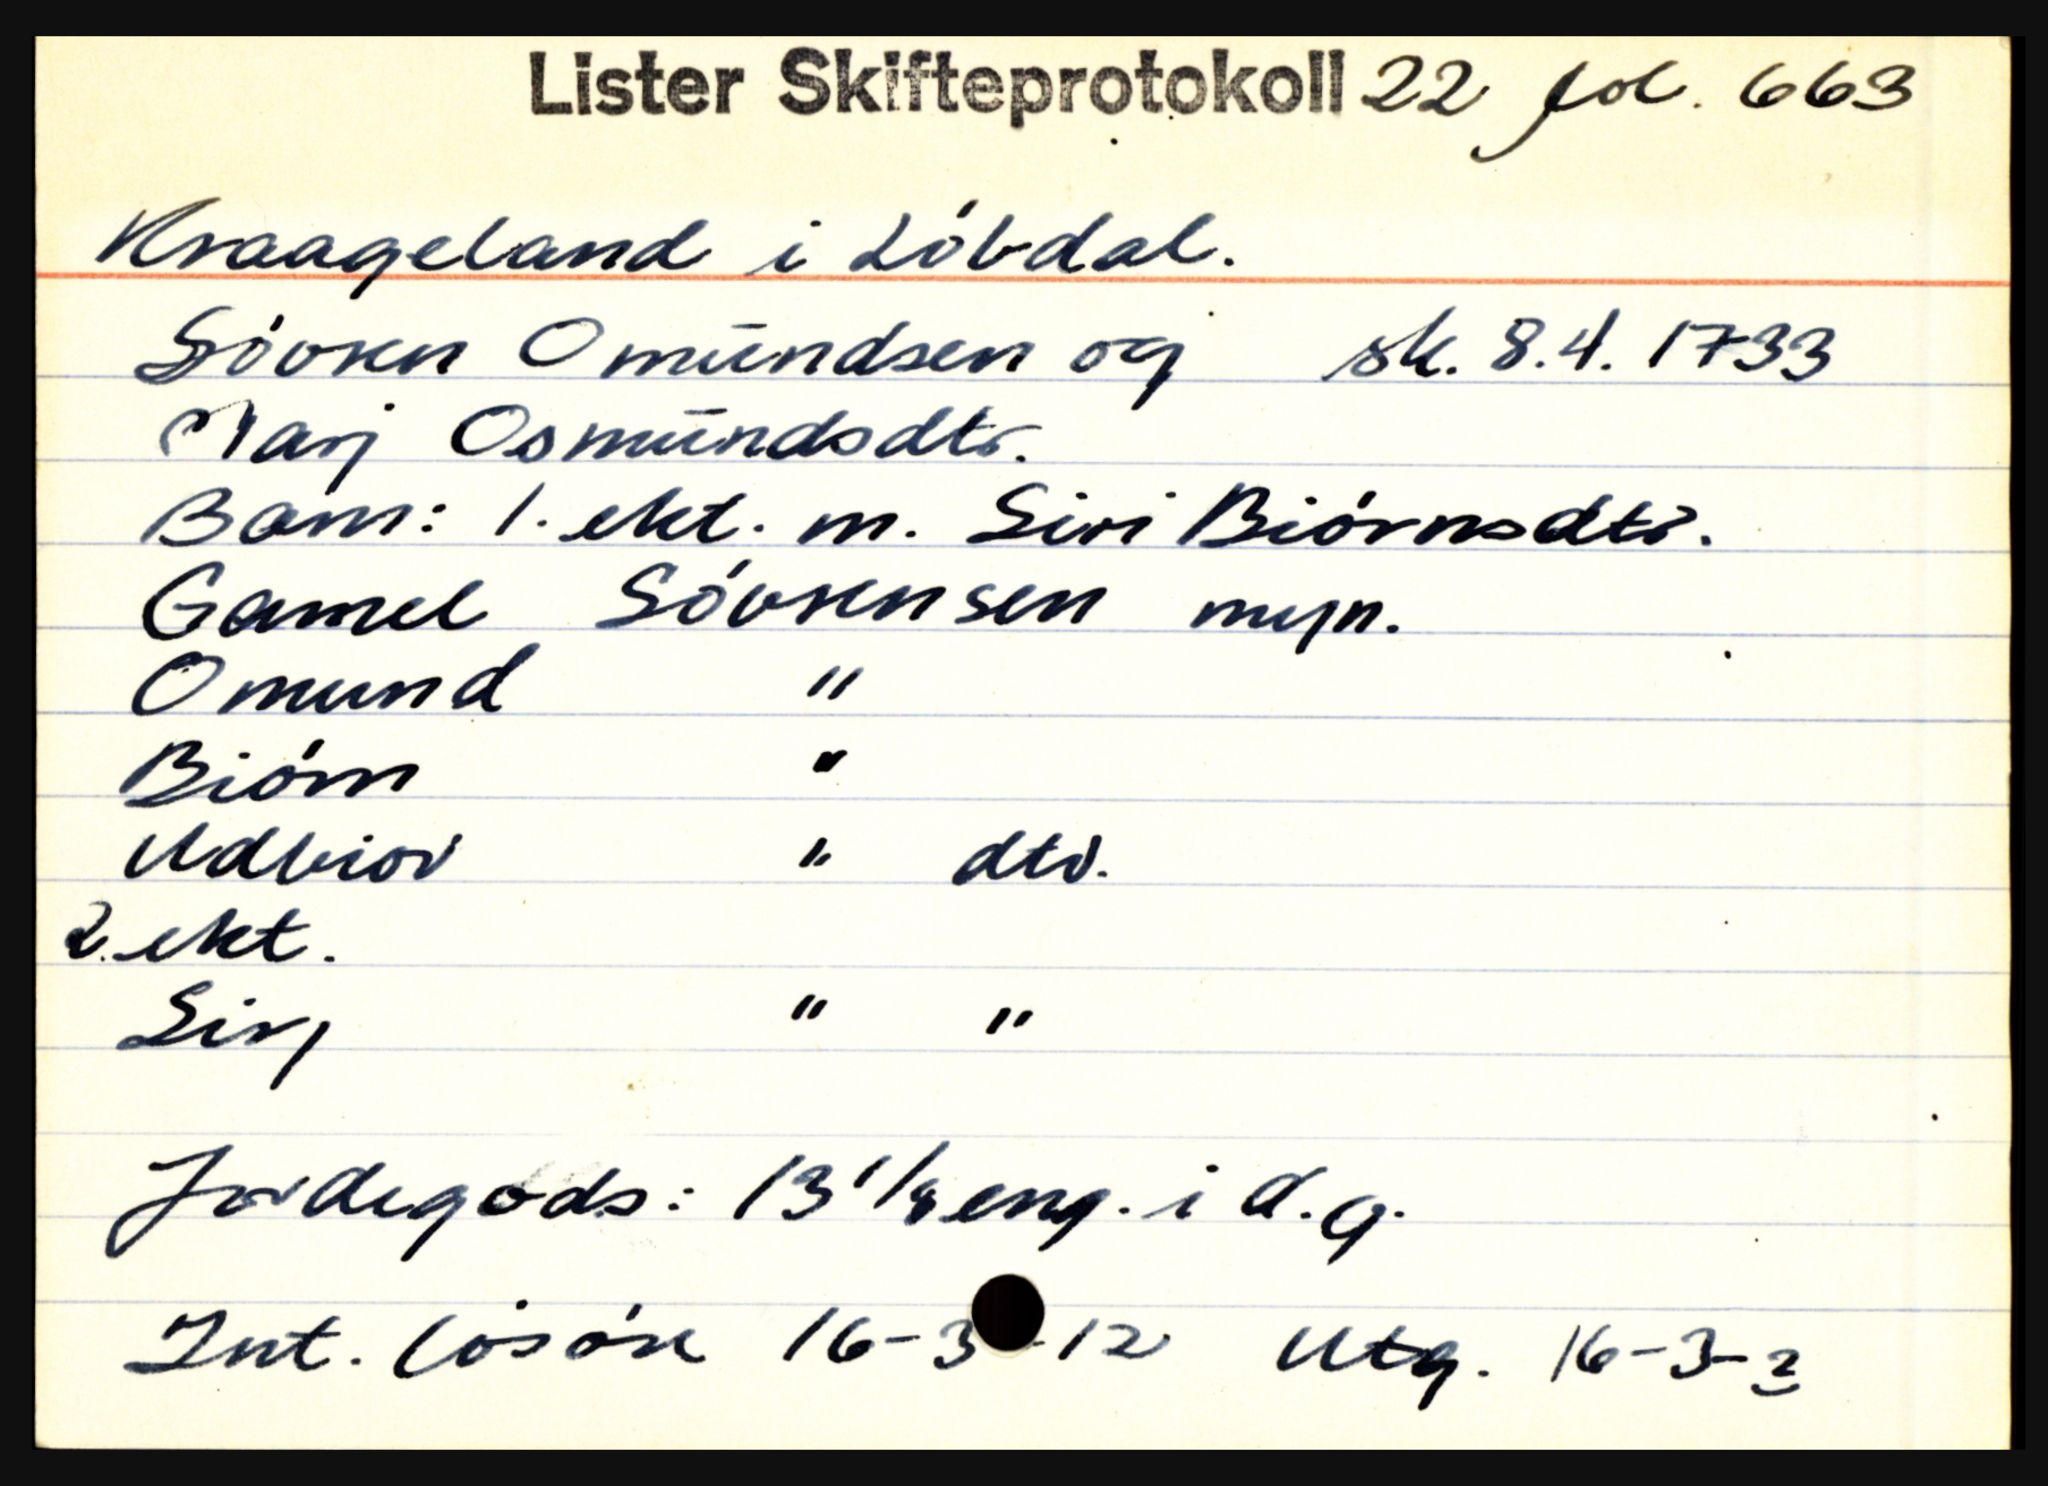 Lister Skifteprotokoll 22 fol. 663
Kraageland i Lóbdal.
Sóvren Omūndsen og sk. 8.4. 1733
Marj Osmūndsdtr.
Barn: 1. ekt. m. Siri Biórnsdtr.
Gamel Sóvrensen myn.
Omund "
Biórn "
Udbior " dtr.
2. ekt.
Sirj " "
Jordegods: 13 1/8 eng. i d.g.
Int. lösöre 16-3-12 Utg. 16-3-2